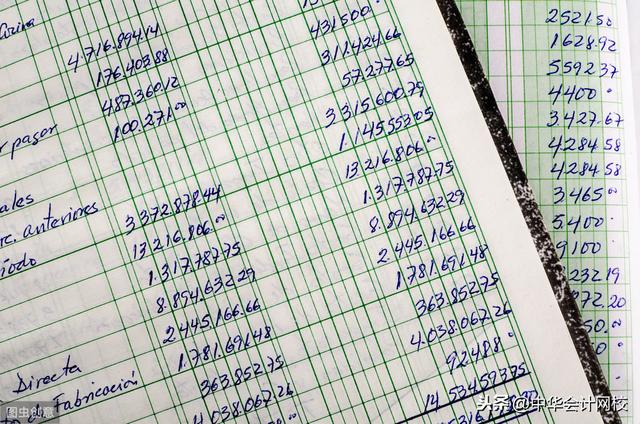 4.716.894.14
176.403.88
487.360.12
100.271.00
pagar
anteriores
3.372.878.44
13.216.806.00
1.317.787.75
8.894.632.29
2.445.166.66
1.781.691.48
363.852.75
4.038.067.26
Directa
de Fabricación
431.500.
311.424.66
57.277.65
3.315.600.79
1.145.553.05
13.216.806.00
1.317.787.75
8.894.632.29
2.445.166.66
1.781.691.48
363.852.75
4.038.067.26
92.488
14.534.593.75
2521.50
1628.92
5592.37
4400
3427.67
4284.58
4284.58
3465.00
5.400
9100
232.19
372.20
50.00
图虫创意
头条@中华会计网校